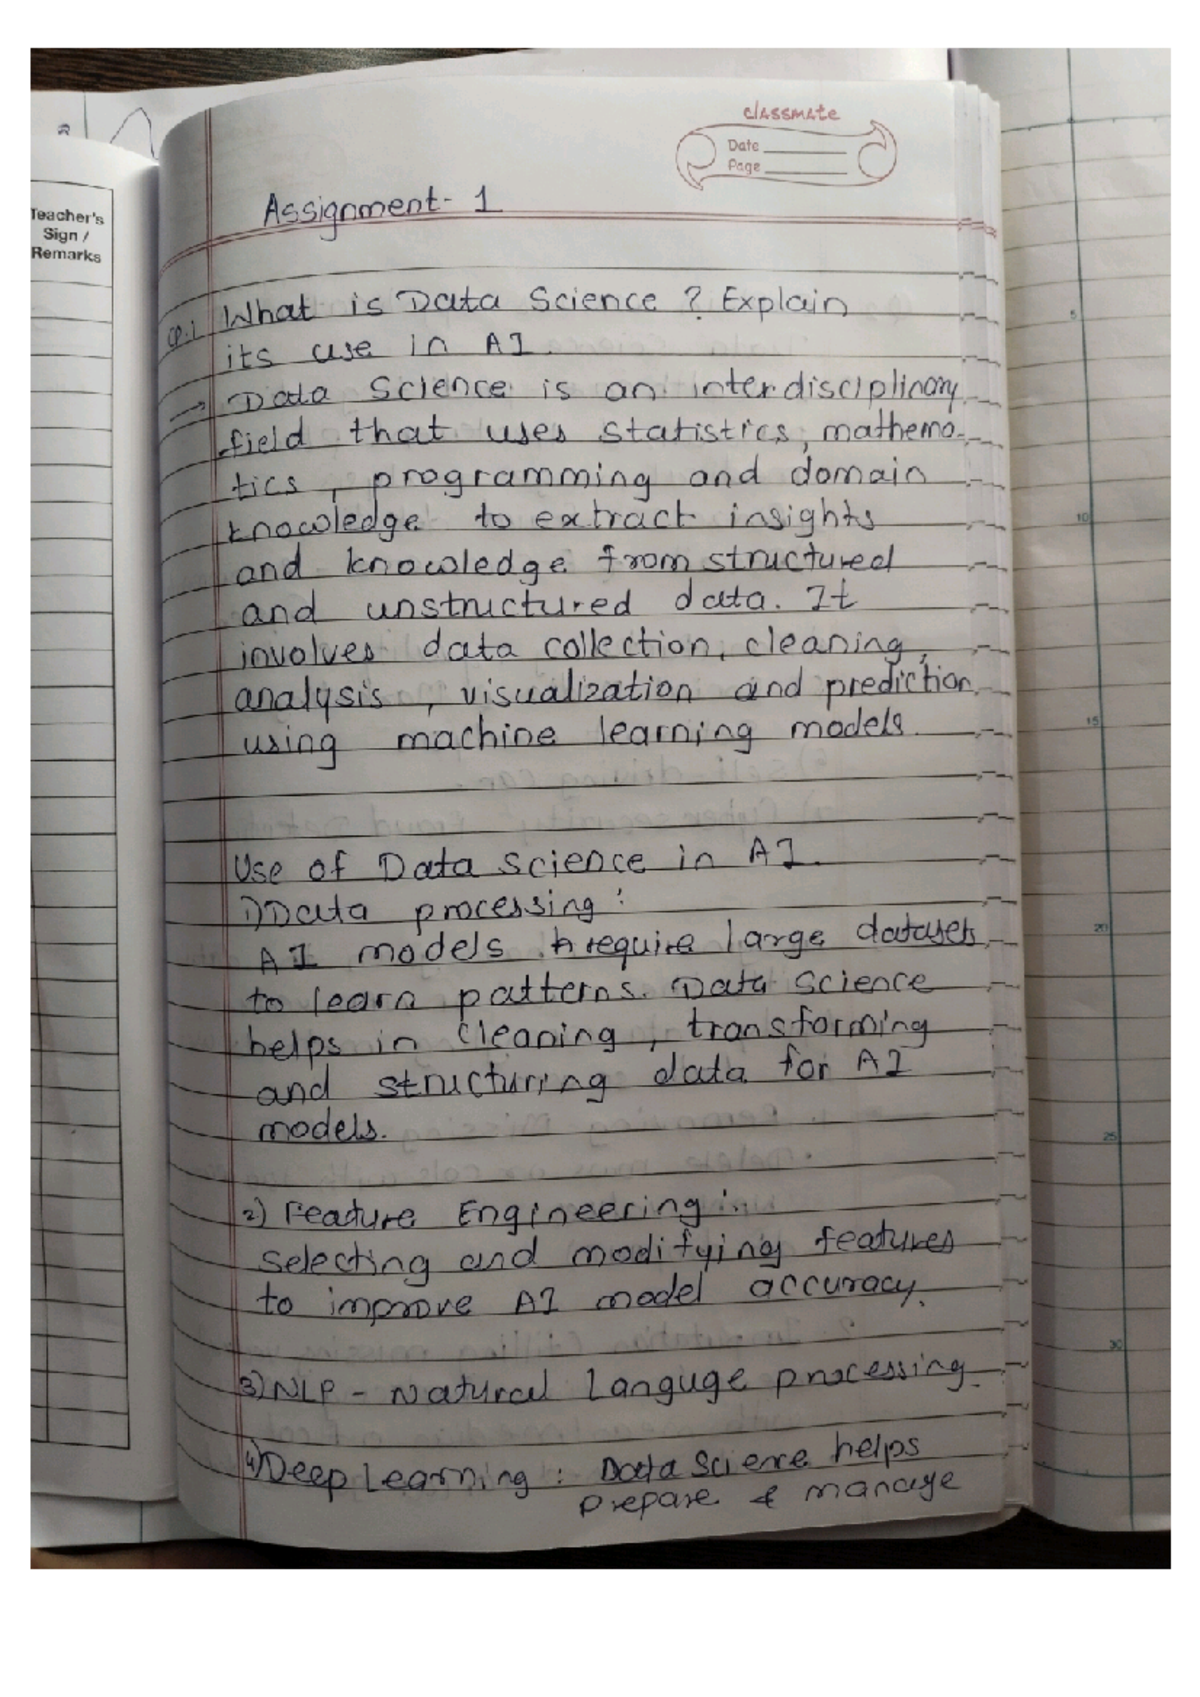 classmate
Date
Page
Teacher's
Sign /
Remarks
Assignment- 1
Q.1 What is Data Science ? Explain
its use in AI.
→ Data Science is an interdisciplinary
field that uses statistics, mathema-
tics, programming and domain
knowledge to extract insights
and knowledge from structured
and unstructured data. It
involves data collection, cleaning,
analysis, visualization and prediction
using machine learning models.
Use of Data Science in AI.
1) Data processing :
AI models require large datasets
to learn patterns. Data Science
helps in cleaning, transforming
and structuring data for AI
models.
2) Feature Engineering :
selecting and modifying features
to improve AI model accuracy.
3) NLP - Natural Languge processing.
4) Deep Learning : Data Science helps
prepare & manage
5
10
15
20
25
30